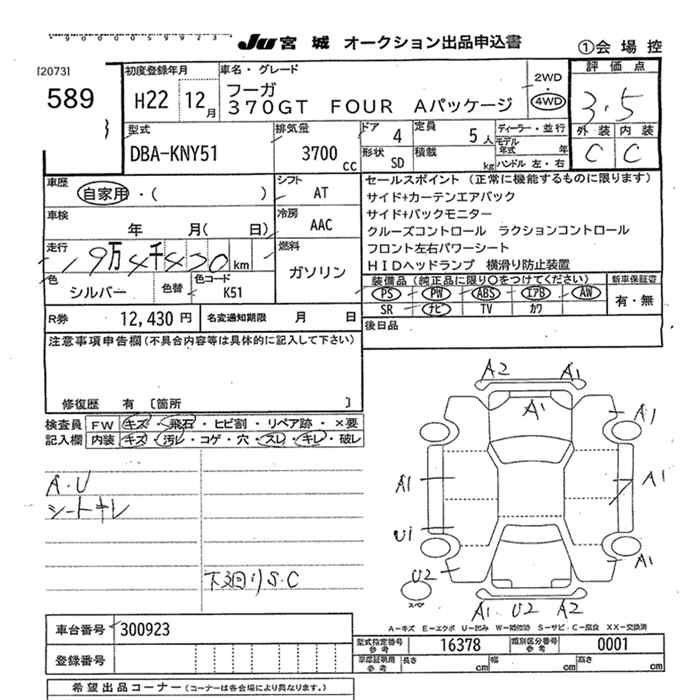 JU 宮城 オークション出品申込書
①会場控
[2073]
589
初度登録年月
H22 12月
車名・グレード
フーガ
370GT FOUR Aパッケージ
2WD
・
4WD
評価点
3.5
外装 内装
C C
型式
DBA-KNY51
排気量
3700 cc
ドア 4
形状 SD
定員 5人
積載 kg
ディーラー・並行
モデル年式 年
ハンドル 左・右
車歴
自家用・( )
車検
年 月( 日)
走行
19万4千420km
色
シルバー
色替
色コード
K51
シフト
AT
冷房
AAC
燃料
ガソリン
セールスポイント (正常に機能するものに限ります)
サイド+カーテンエアバック
サイド+バックモニター
クルーズコントロール ラクションコントロール
フロント左右パワーシート
HIDヘッドランプ 横滑り防止装置
装備品(純正品に限り○をつけてください)
PS PW ABS エアB AW
SR ナビ TV カワ
新車保証書
有・無
R券 12,430円
名変通知期限 月 日
後日品
注意事項申告欄(不具合内容等は具体的に記入して下さい)
修復歴 有 [箇所 ]
検査員記入欄
FW キズ・飛石・ヒビ割・リペア跡・×要
内装 キズ・汚レ・コゲ・穴・スレ・キレ・破レ
A・U
シートキレ
下回りS.C
A2 A1
A1
A1
A1 A1
U1
U2 A1
スペア
A1 U2 A2
A-キズ E-エクボ U-凹み W-補修跡 S-サビ・C-腐食 XX-交換済
車台番号 300923
登録番号
型式指定番号
参考
16378
類別区分番号
参考
0001
参考
長さ cm 幅 cm 高さ cm
希望出品コーナー(コーナーは各会場により異なります。)